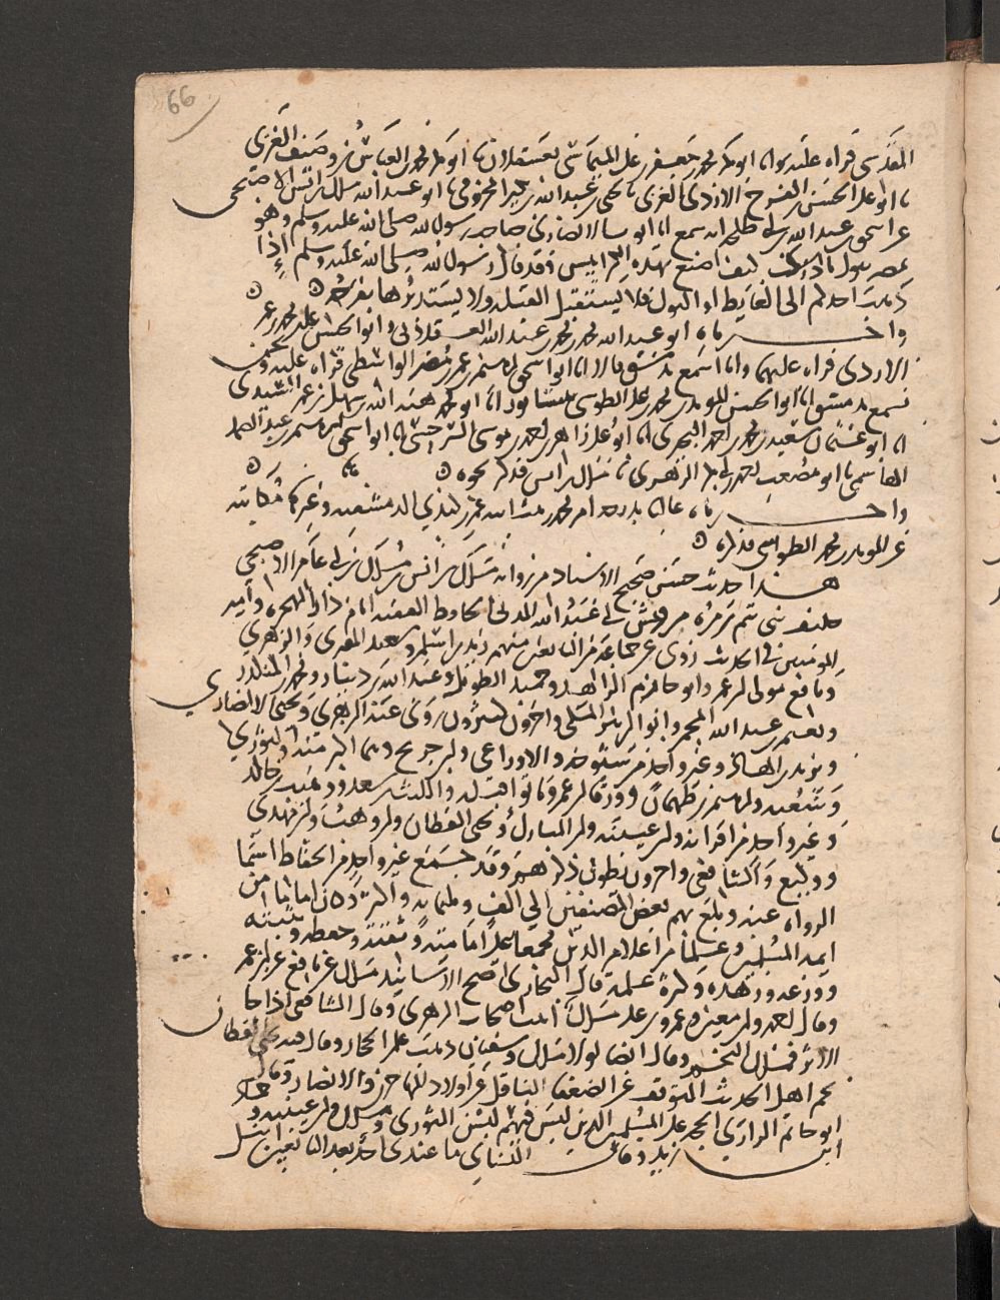 66
المقدسي قراه عليه انا ابو بكر محمد بن جعفر بن علي الميماسي بعسقلان نا ابو بكر محمد بن العباس بن وصيف الغزي
نا ابو علي الحسن بن الفرج الازدي الغزي نا يحيى بن عبد الله بن بكير المخزومي نا ابو عبد الله مالك بن انس الاصبحي
عن اسحق بن عبد الله بن ابي طلحة انه سمع ابا ايوب الانصاري صاحب رسول الله صلى الله عليه وسلم وهو
بمصر يقول ما ادري كيف اصنع بهذه الكراييس وقد قال رسول الله صلى الله عليه وسلم اذا
ذهب احدكم الى الغايط او البول فلا يستقبل القبلة ولا يستدبرها بفرجه
واخبرناه ابو عبد الله محمد بن محمد بن عبد الله وابو الحسن علي بن محمد بن
الازدي قراه عليهما وانا اسمع بدمشق قالا انا ابو اسحق ابراهيم بن عمر بن مضر الواسطي قراه عليه ونحن
نسمع بدمشق انا ابو الحسن المويد بن محمد بن علي الطوسي بنيسابور انا ابو محمد هبة الله بن سهل بن عمر السيدي
انا ابو عثمان سعيد بن محمد بن احمد البحيري انا ابو علي زاهر بن احمد بن موسى السرخسي انا ابو اسحق ابراهيم بن عبد الصمد
الهاشمي نا ابو مصعب احمد بن ابي بكر الزهري نا مالك بن انس فذكر نحوه
واخبرناه عاليا ام محمد بن عمر الكندي الدمشقية وغيرها مكاتبة
عن المويد بن محمد الطوسي فذكره
هذا حديث حسن صحيح الاسناد من رواية مالك بن انس بن مالك بن ابي عامر الاصبحي
حليف بني تيم بن مرة من قريش ابي عبد الله المدني الحافظ الفقيه امام دار الهجرة وامير
المومنين في الحديث روى عن جماعة من التابعين منهم زيد بن اسلم وسعيد المقبري والزهري
ونافع مولى ابن عمر وابو حازم الزاهد وحميد الطويل وعبد الله بن دينار ومحمد بن المنكدر
ونعيم بن عبد الله المجمر وابو الزبير المكي واخرون كثيرون روى عنه الزهري ويحيى الانصاري
ويزيد بن الهاد وغير واحد من شيوخه والاوزاعي وابن جريج وهما اكبر منه والثوري
وشعبة وابراهيم بن طهمان وورقا بن عمر وماتوا قبله والليث بن سعد وخالد
وغير واحد من اقرانه وابن عيينة وابن المبارك ويحيى القطان وابن وهب وابن مهدي
ووكيع والشافعي واخرون يطول ذكرهم وقد جمع غير واحد من الحفاظ اسما
الرواه عنه وبلغ بهم بعض المصنفين الى الف وثلثمايه واكثر وكان اماما من
ايمة المسلمين وعلما من اعلام الدين مجمعا على امامته وثقته وحفظه وتثبته
وورعه وزهده وكثرة علمه قال البخاري اصح الاسانيد مالك عن نافع عن ابن عمر
وقال احمد وابن معين وعمرو بن علي مالك اثبت اصحاب الزهري وقال الشافعي اذا جا
الاثر فمالك النجم وقال ايضا لولا مالك وسفيان ذهب علم الحجاز وقال فيه يحيى القطان
نجم اهل الحديث المتوقف عن الضعفا الناقل عن اولاد المهاجرين والانصار وقال
ابو حاتم الرازي الحجة على المسلمين الذين ليس فيهم لبس الثوري وشعبة ومالك وابن عيينة وحماد
ابن زيد وقال النسائي ما عندي احد بعد التابعين انبل